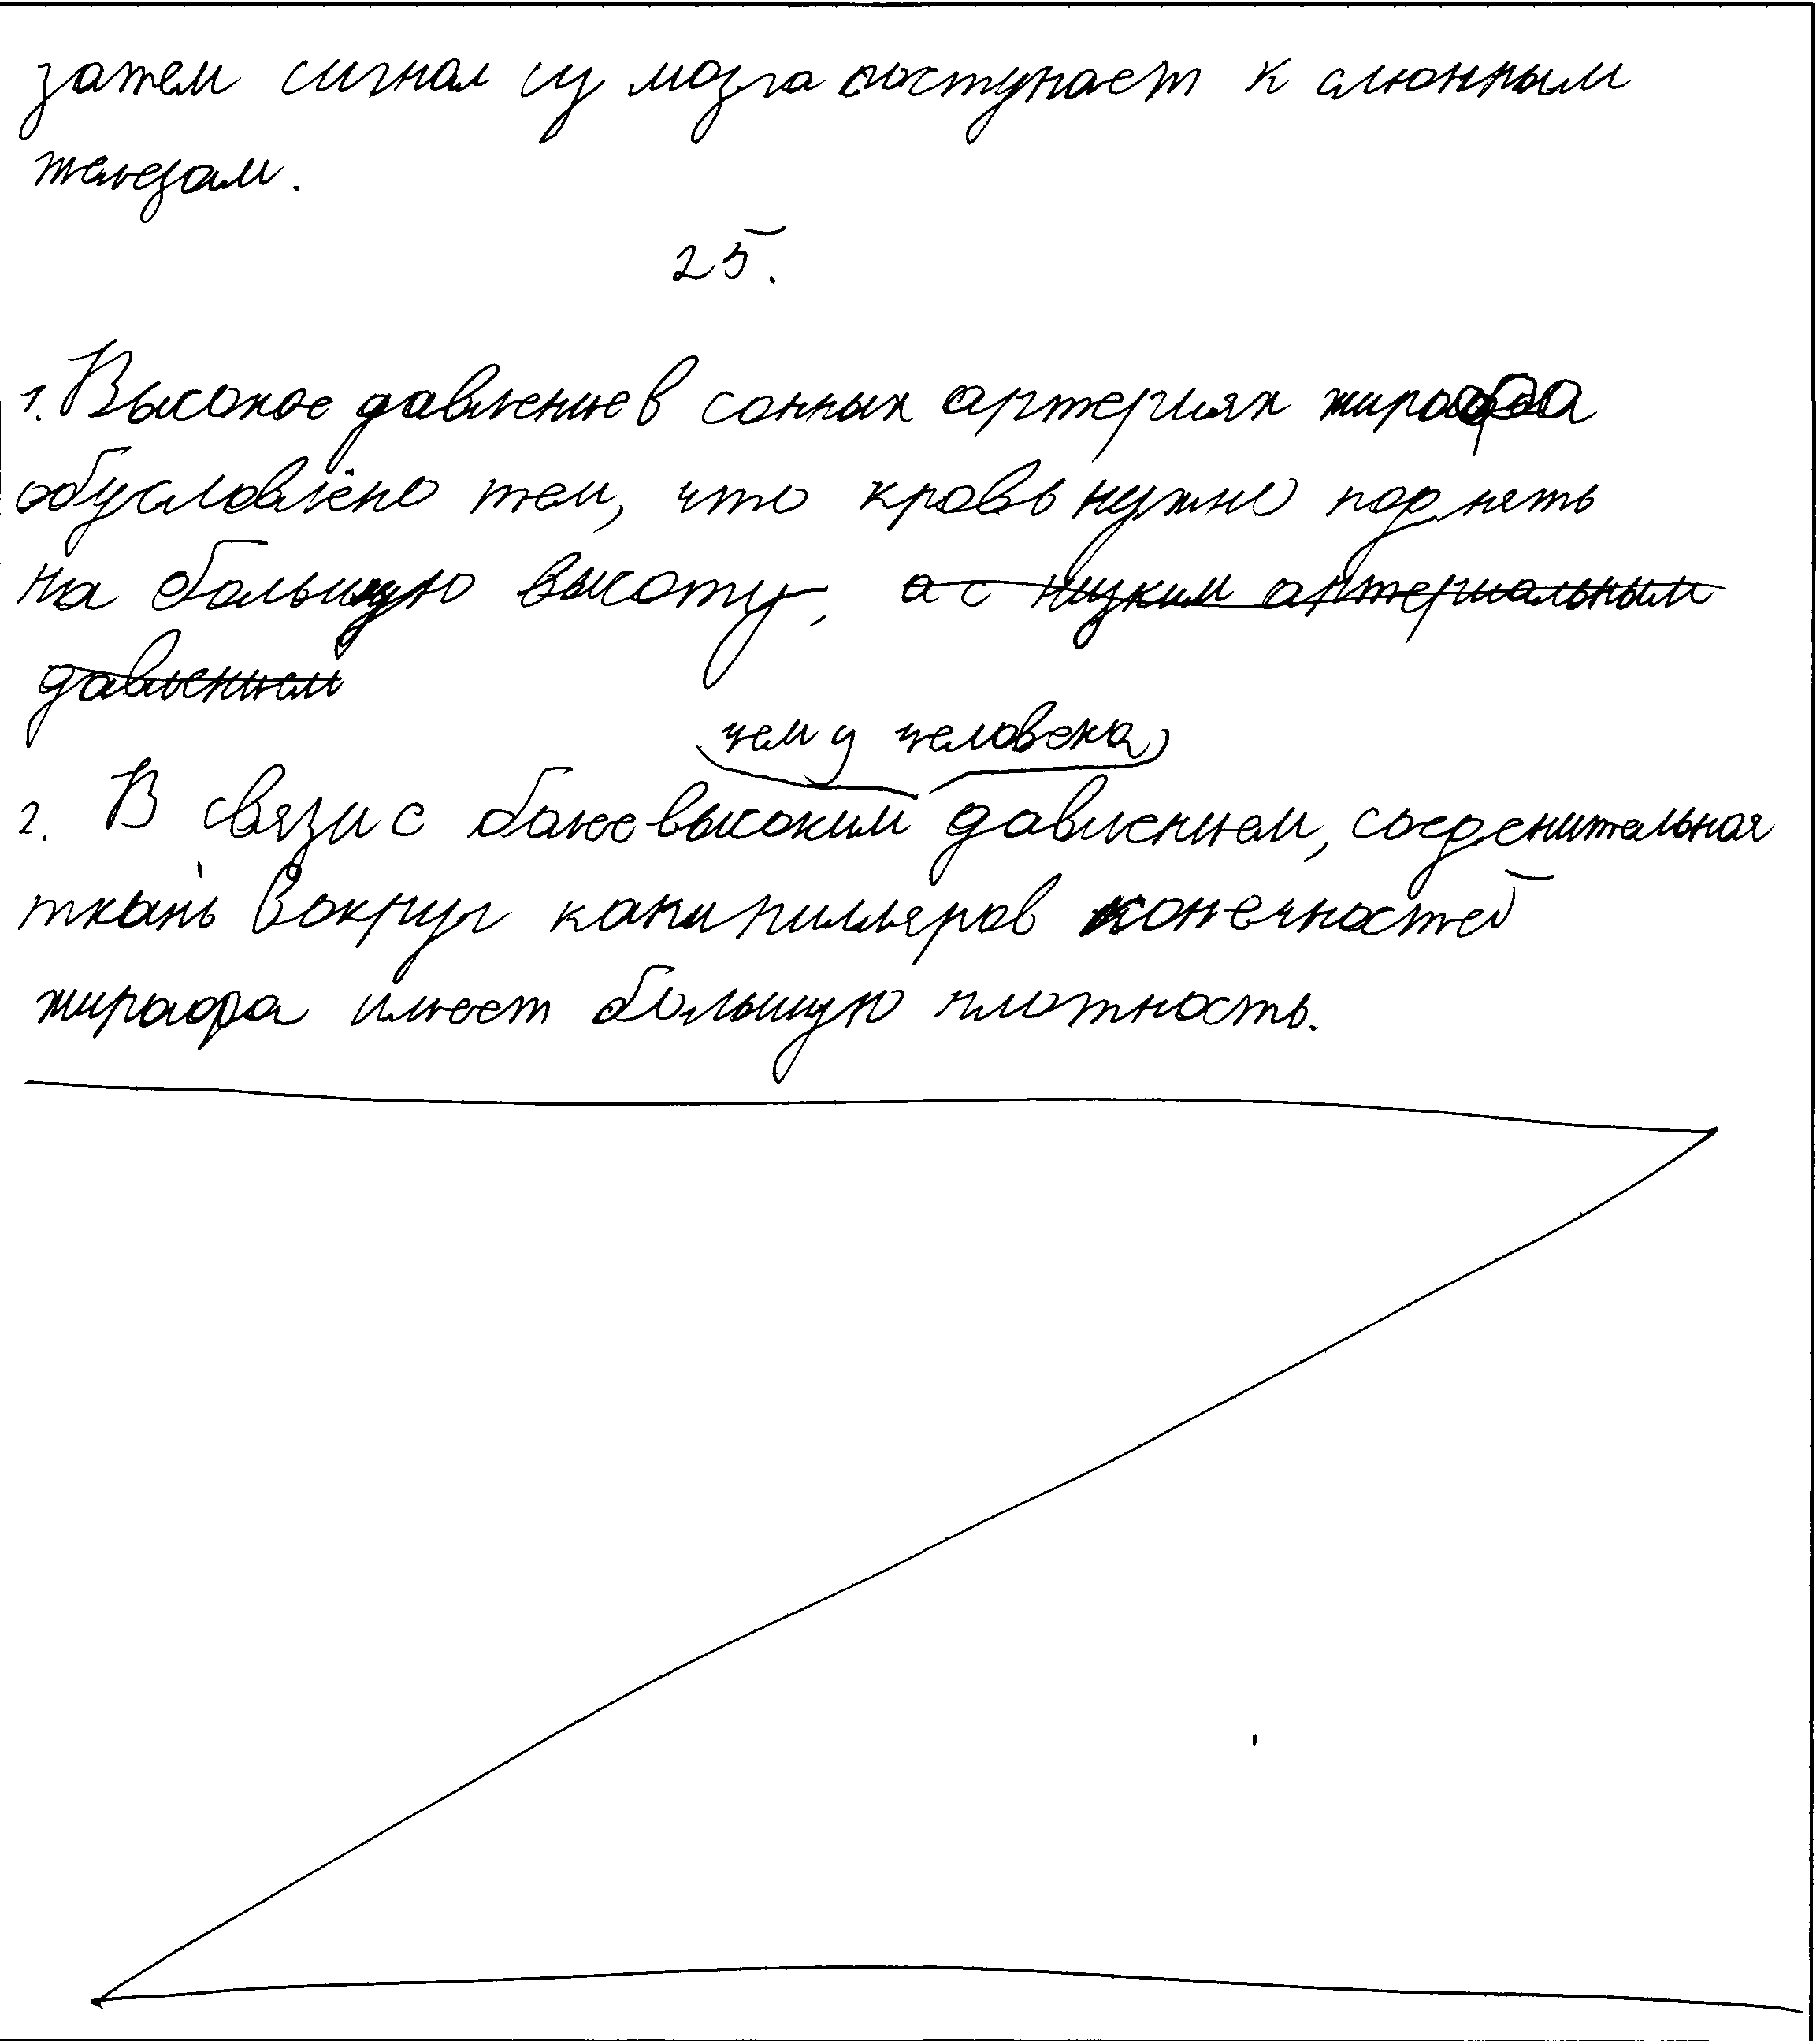 затем сигнал из мозга поступает к слюнным
железам.
25.
1. Высокое давление в сонных артериях жирафа
обусловлено тем, что кровь нужно поднять
на большую высоту, а с низким артериальным
давлением
чем у человека,
2. В связи с более высоким давлением, соеденительная
ткань вокруг капилляров конечностей
жирафа имеет большую плотность.